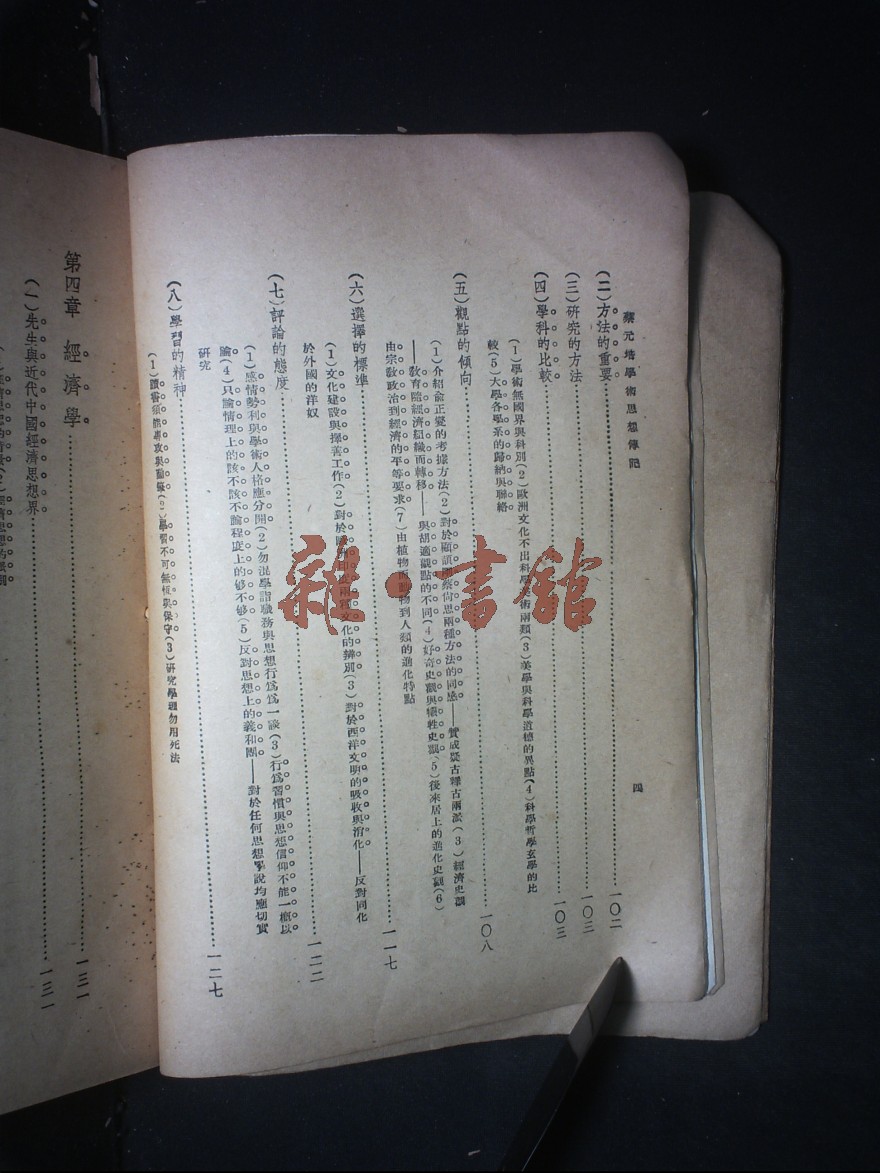 蔡元培學術思想傳記
四
(二)方法的重要……一〇二
(三)研究的方法……一〇三
(四)學科的比較……一〇三
(1)學術無國界與科別(2)歐洲文化不出科學美術兩類(3)美學與科學道德的異點(4)科學哲學玄學的比
較(5)大學各學系的歸納與聯絡
(五)觀點的傾向……一〇八
(1)介紹俞正燮的考據方法(2)對於顧頡剛蔡尚思兩種方法的同感——贊成疑古釋古兩派(3)經濟史觀
——敎育隨經濟組織而轉移——與胡適觀點的不同(4)好奇史觀與犧牲史觀(5)後來居上的進化史觀(6)
由宗敎政治到經濟的平等要求(7)由植物而動物到人類的進化特點
(六)選擇的標準……一一七
(1)文化建設與擇善工作(2)對於歐洲印度兩宗文化的辨別(3)對於西洋文明的吸收與消化——反對同化
於外國的洋奴
(七)評論的態度……一二二
(1)感情勢利與學術人格應分開(2)勿混學詣職務與思想行爲爲一談(3)行爲習慣與思想信仰不能一槪以
論(4)只論情理上的該不該不論程度上的够不够(5)反對思想上的義和團——對於任何思想學說均應切實
研究
(八)學習的精神……一二七
(1)讀書須能專攻與勤(2)學習不可無恆與保守(3)研究學理勿用死法
第四章 經濟學……一三一
(一)先生與近代中國經濟思想界……一三一
雜·書館